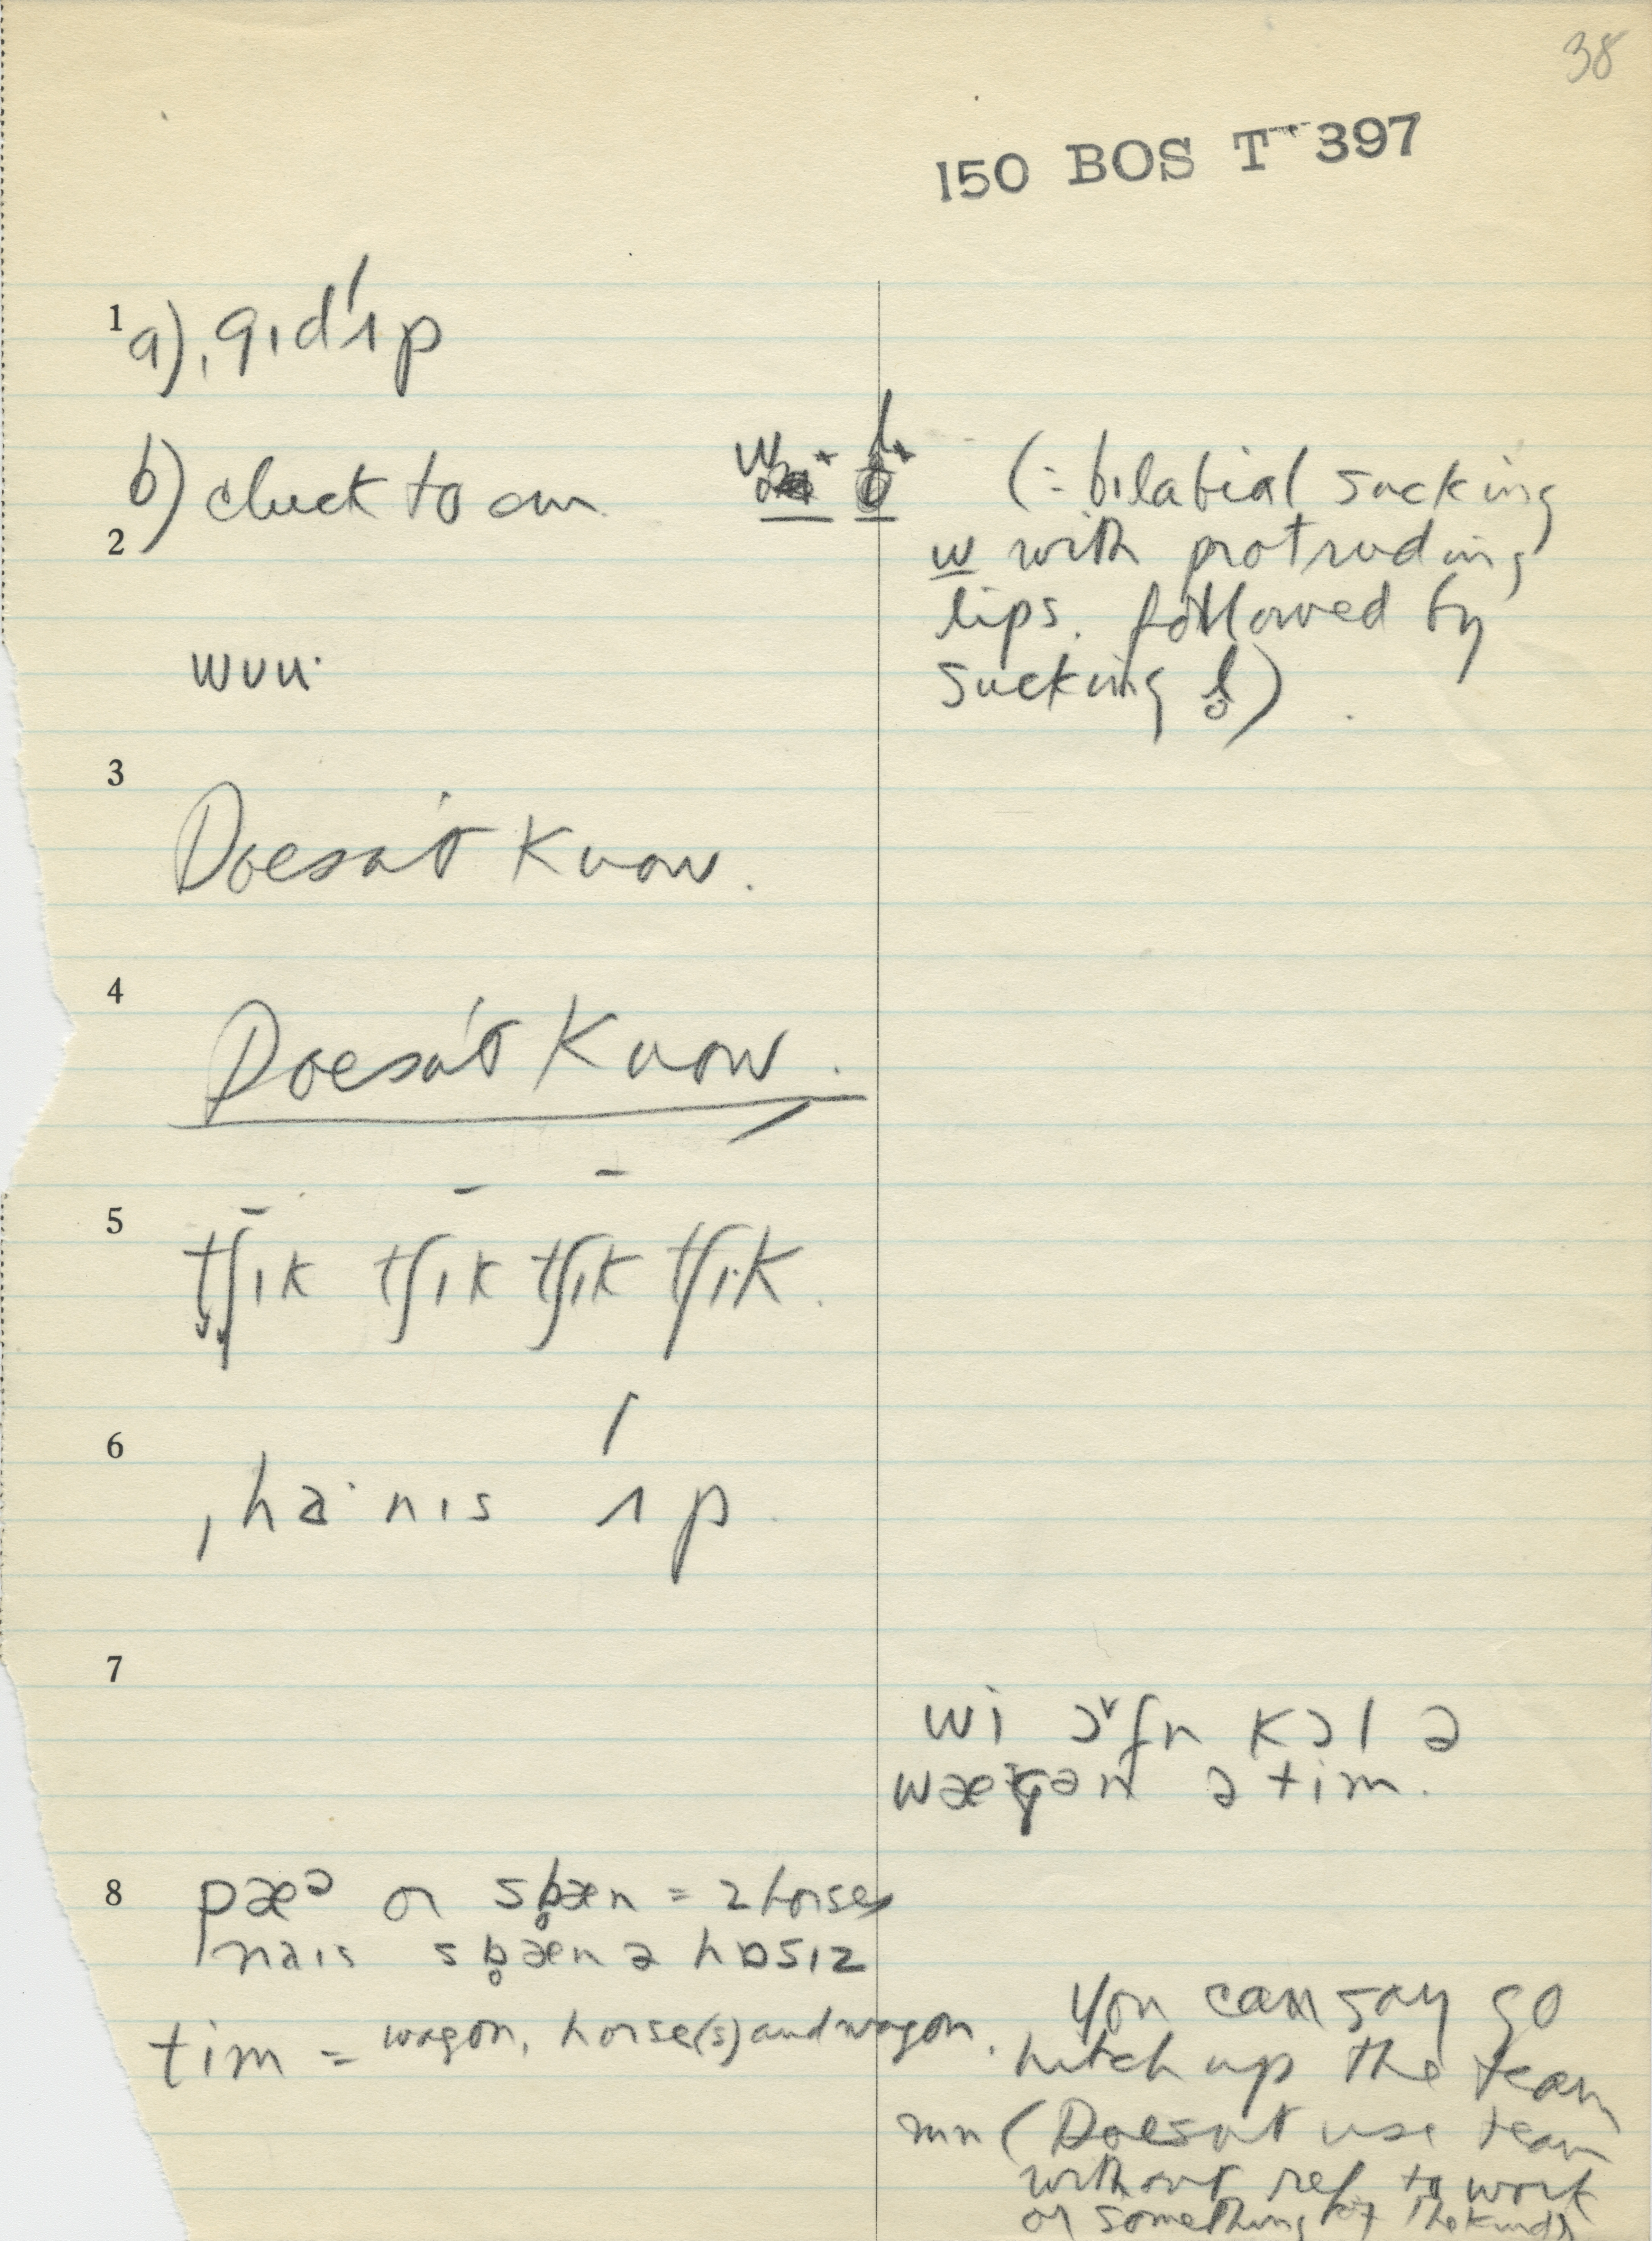 38
150 BOS T 397
1
a) ˌgɪd'ʌp
b) cluck to em
w˟ b̥˟ (= bilabial sucking
2
w with protruding
lips. followed by
sucking b̥).
wuu·
3
Doesn't Know.
4
Doesn't Know.
5
tʃɪk tʃɪk tʃɪk tʃɪk.
6
ˌha·nɪs ʌp.
7
wi ɔ˅fn kɔl ə
wægən ə tim.
8
pæᵊ or sb̥æn = 2 horses
naɪs sb̥æn ə hɒsɪz
tim = wagon, horse(s) and wagon.
You can say go
hitch up the team
mn (Doesn't use team
without ref to work
or something of the kind)